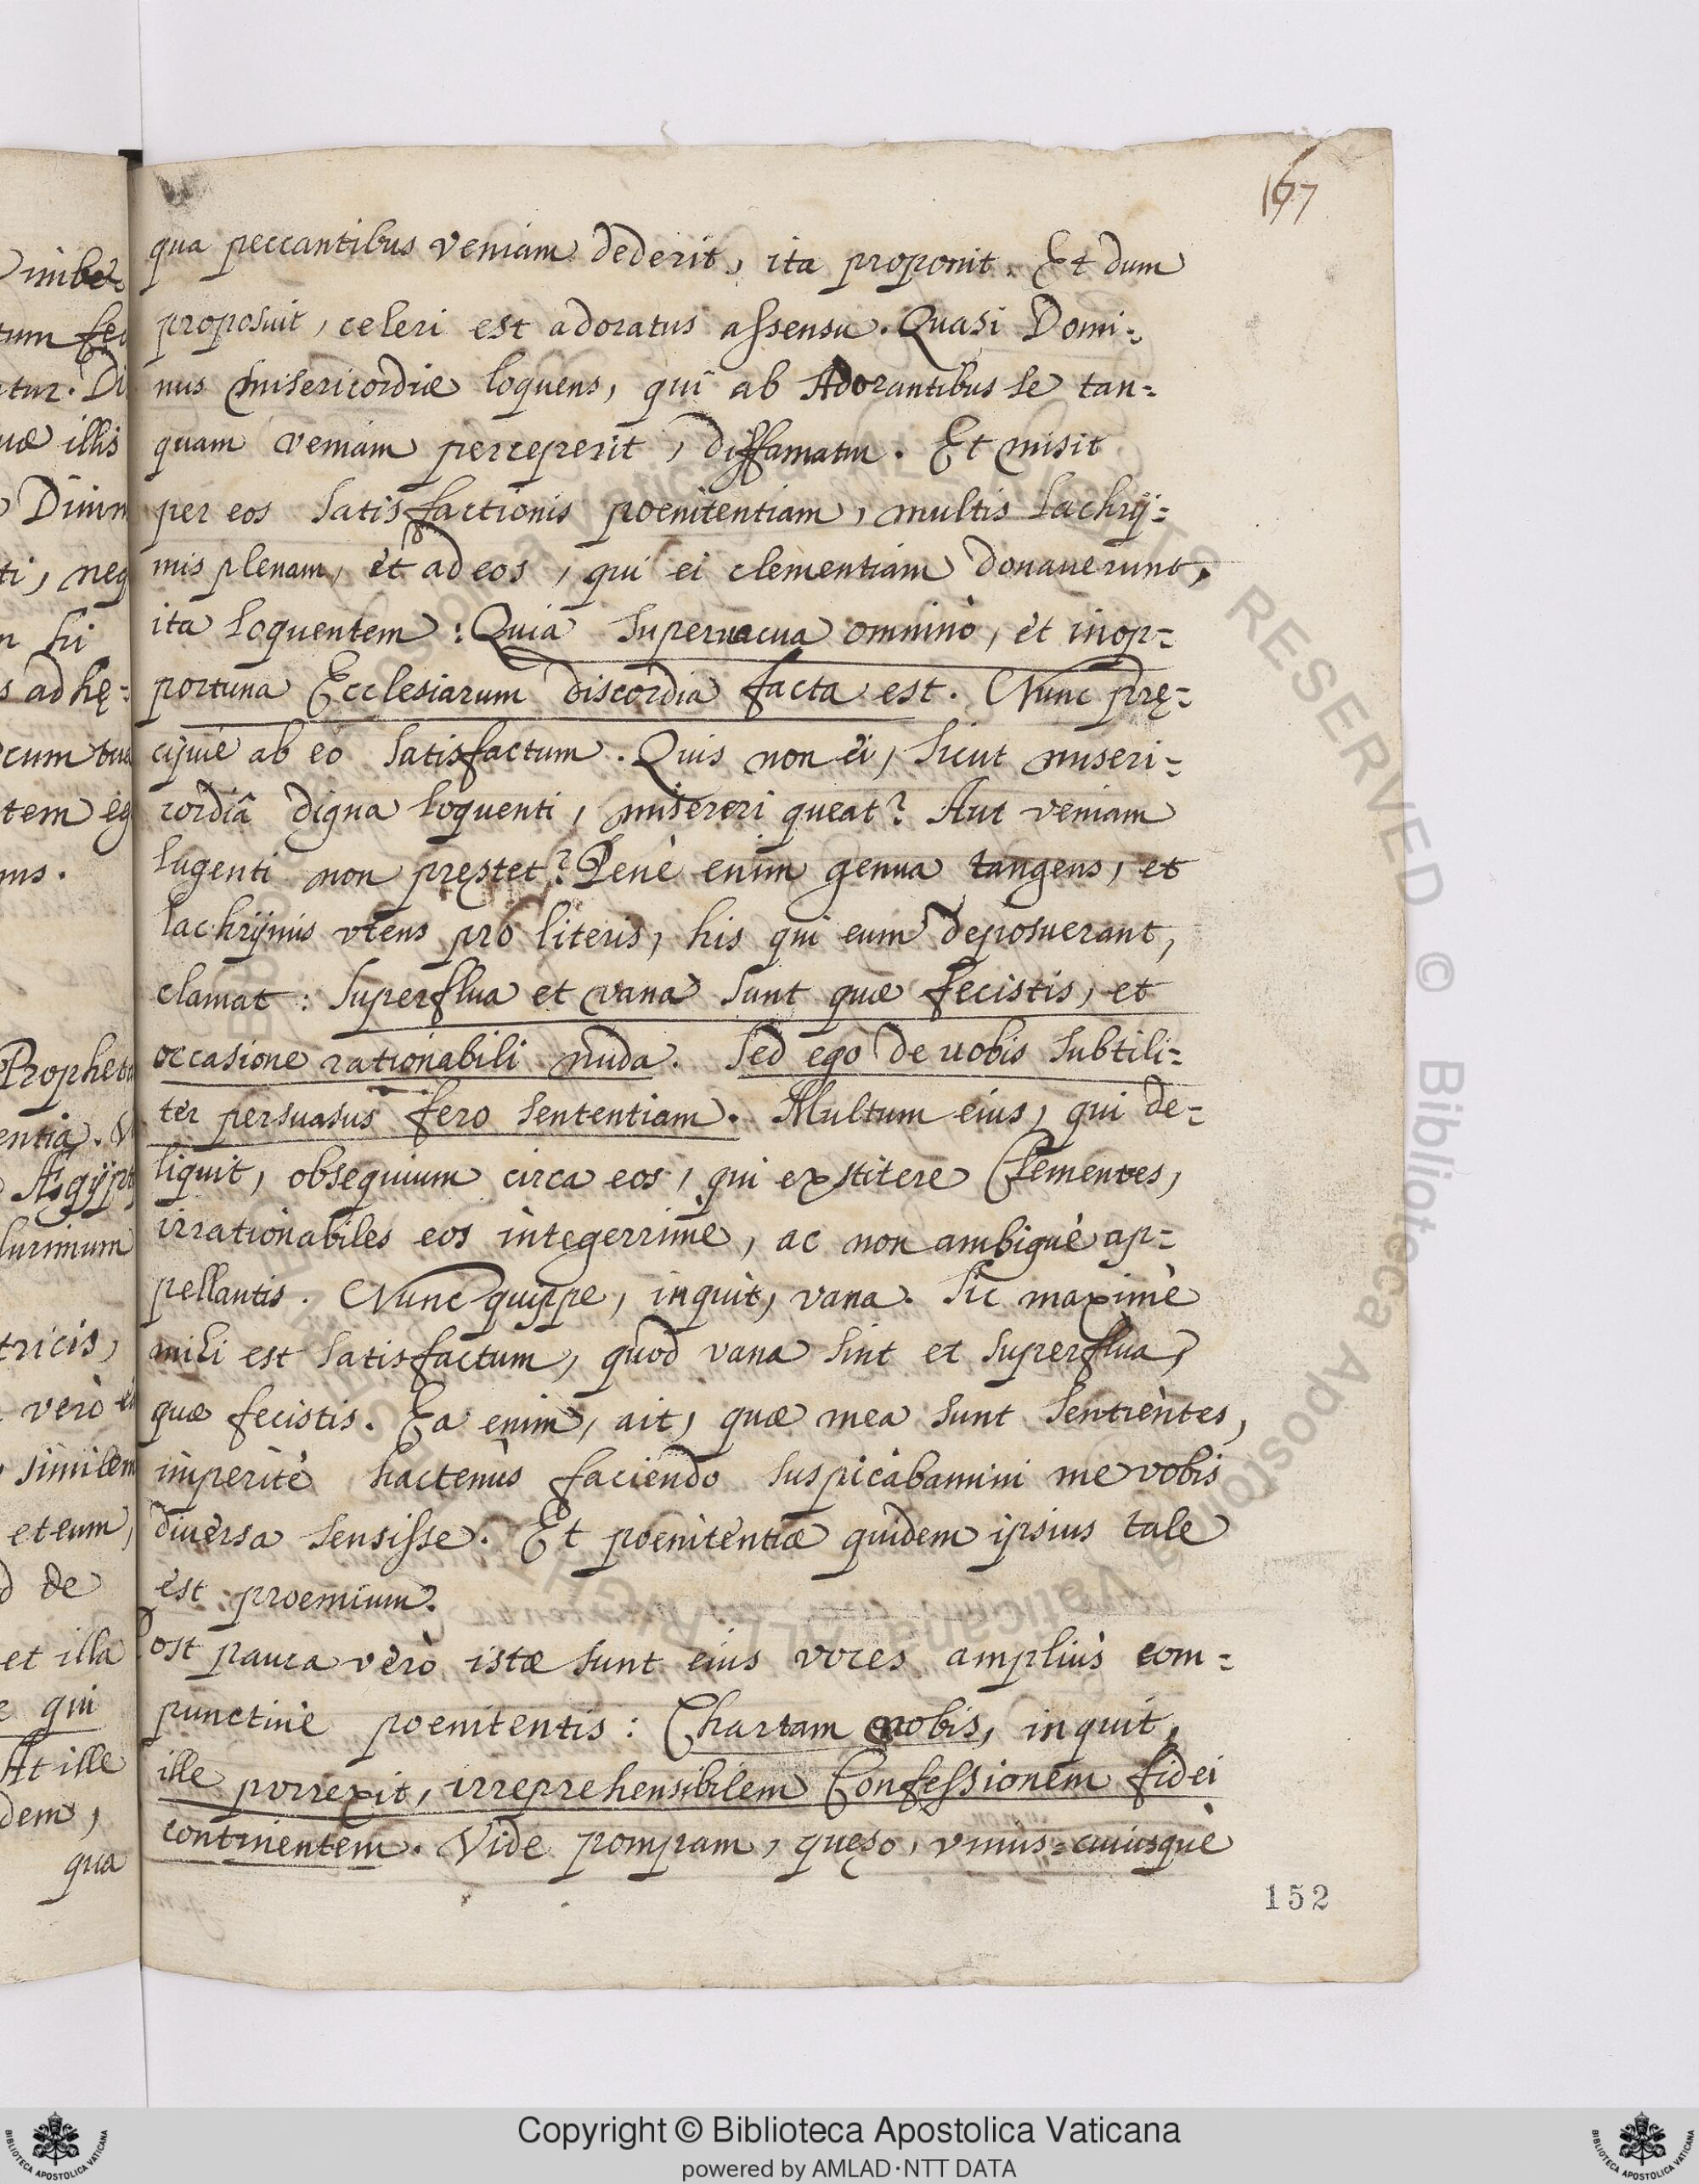 167
qua peccantibus veniam dederit, ita proponit. Et dum
proposuit, celeri est adoratus assensu. Quasi Domi=
nus misericordiæ loquens, qui ab Adorantibus se tan=
quam veniam perceperit, diffamatur. Et misit
per eos satisfactionis poenitentiam, multis lachrÿ=
mis plenam, et ad eos, qui ei clementiam donauerunt,
ita loquentem: Quia superuacua omninò, et inop=
portuna Ecclesiarum discordia facta est. Nunc prę=
cipuè ab eo satisfactum. Quis non ei, sicut miseri=
cordiâ digna loquenti, misereri queat? Aut veniam
lugenti non pręstet? Penè enim genua tangens, et
lachrÿmis vtens pro literis, his qui eum deposuerant,
clamat: superflua et vana sunt quæ fecistis, et
occasione rationabili nuda. Sed ego de uobis subtili=
ter persuasus fero sententiam. Multum eius, qui de=
liquit, obsequium circa eos, qui exstitere Clementes,
irrationabiles eos integerrimè, ac non ambiguè ap=
pellantis. Nunc quippe, inquit, vana. Sic maximè
mihi est satisfactum, quod vana sint et superflua,
quæ fecistis. Ea enim, ait, quæ mea sunt sentientes,
imperitè hactenùs faciendo suspicabamini me vobis
diuersa sensisse. Et poenitentiæ quidem ipsius tale
est proemium.
Post pauca verò istæ sunt eius voces ampliùs com=
punctiuè poenitentis: Chartam nobis, inquit,
ille porrexit, irreprehensibilem Confessionem fidei
continentem. Vide pompam, quęso, vnius=cuiusque
152
imbe
tum fe
tur. Di
uæ illis
ti, neq
hi
s ad hę=
cum tu
tem eg
mus.
Prophet
entia. V
Ægÿpt
lurimum
tricis,
verò
similem
et eum,
de
et illa
e qui
At ille
dem,
qua
Biblioteca Apostolica Vaticana ALL RIGHTS RESERVED ©
Copyright © Biblioteca Apostolica Vaticana
powered by AMLAD·NTT DATA
BIBLIOTECA APOSTOLICA VATICANA
BIBLIOTECA APOSTOLICA VATICANA